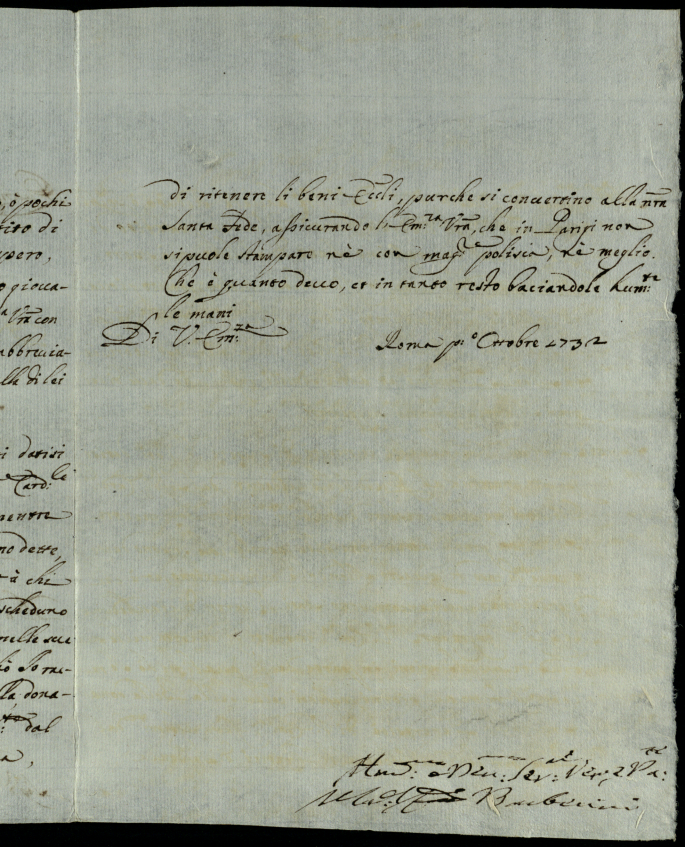 ò pochi
tito di
pero,
o giova-
Vra con
abbrevia-
alla di lei
i datisi
Card:le
mentre
no dette,
à chi
scheduno
nelle sue
la dona-
dal
di ritenere li beni Eccli, purche si convertino alla nra
Santa Fede, assicurando l'Em:za Vra, che in Parigi non
si puole stampare nè con mag:re polisia, nè meglio.
Che è quanto devo, et in tanto resto baciandole hum:te
le mani
Di V. Em:za
Roma p:o Ottobre 1732
Barberini